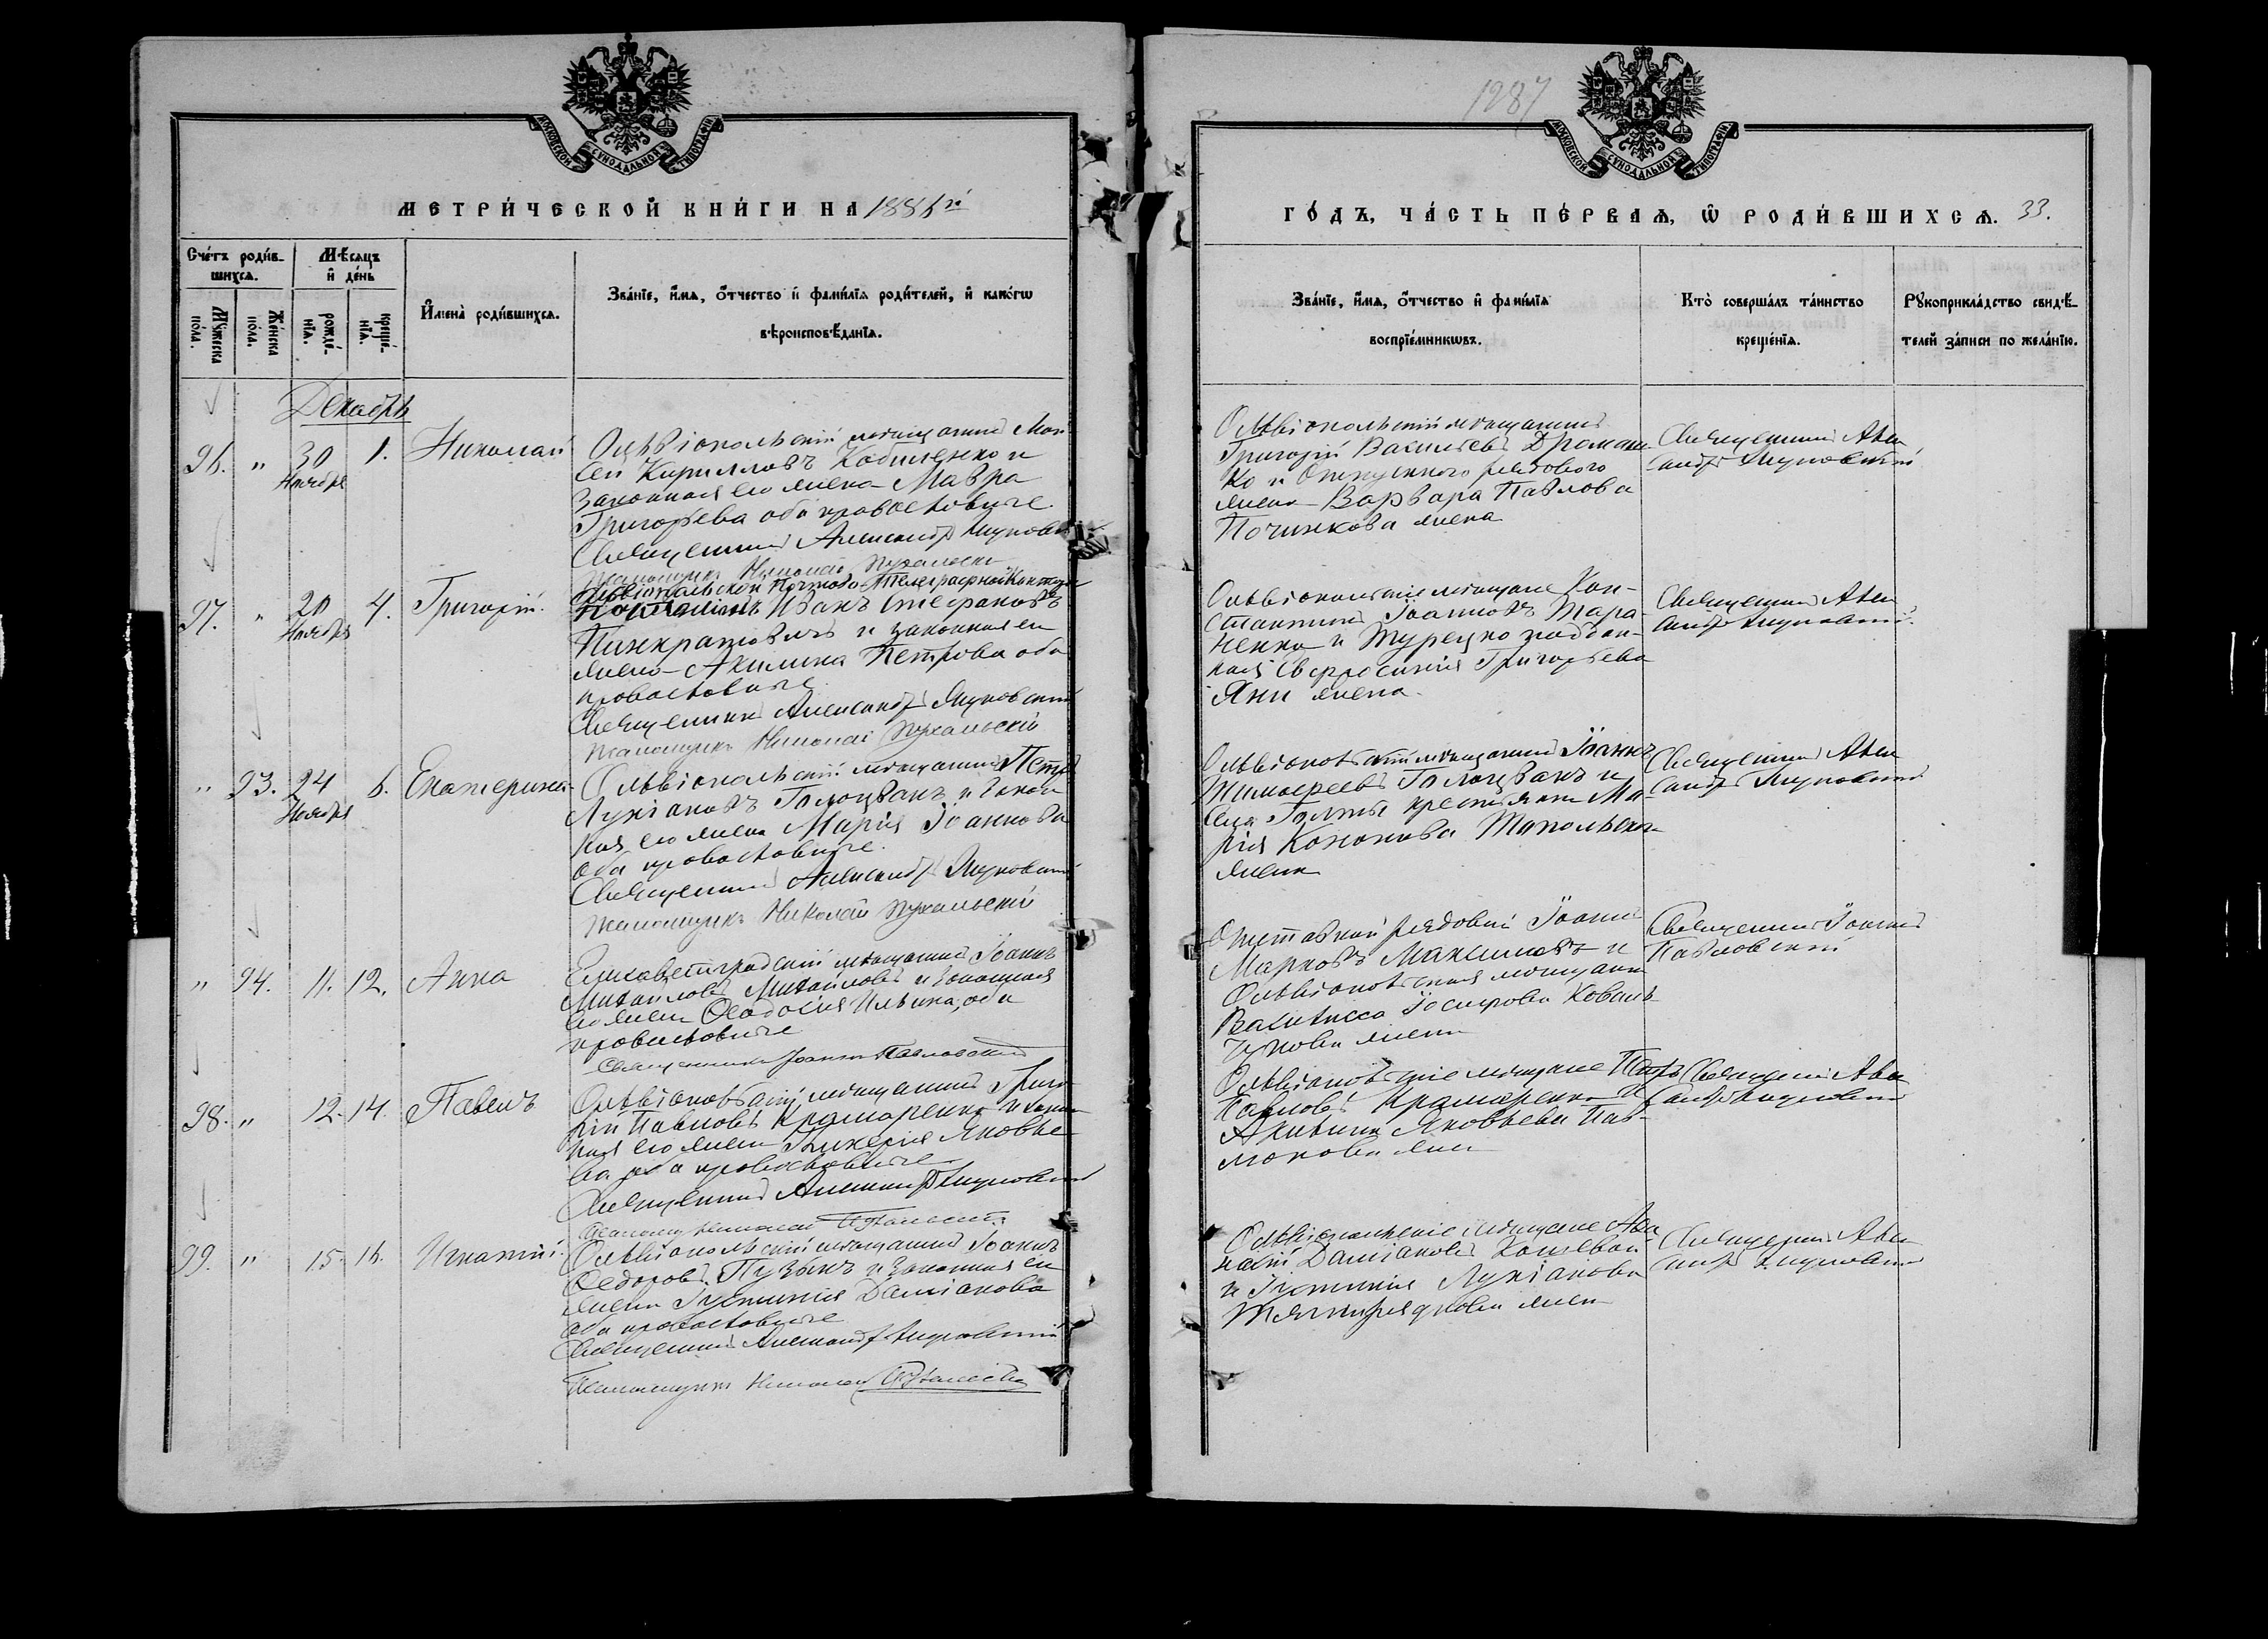 МОСКОВСКОЙ СѴНОДАЛЬНОЙ ТИПОГРАФІИ
МЕТРИ́ЧЕСКОЙ КНИ́ГИ НА 1886 й
Сче́тъ роди́в-
шихсѧ.
Мꙋ́жеска
по́ла.
Же́нска
по́ла.
Мѣ́сѧцъ
и҆ де́нь
рожде́-
нїѧ.
креще́-
нїѧ.
И҆мена̀ роди́вшихсѧ.
Зва́нїе, и҆́мѧ, ѻ҆́тчество и҆ фами́лїѧ роди́телей, и҆ како́гѡ
вѣроисповѣ́данїѧ.
Декабрь
96. " 30 Ноября 1. Николай
Ольвіопольскій мѣщанинъ Мои
сей Кирилловъ Кобыленко и
законная его жена Мавра
Григорьева оба православные
Священникъ Александръ
Псаломщикъ Николай
97. " 20 Ноября 4. Григорій.
Ольвіопольской Почтово-Телеграфной Конторы
Почталіонъ Иванъ Стефановъ
Панкратовичъ и законная его
жена Акилина Петрова оба
православные
Священникъ Александръ
Псаломщикъ Николай
" 93. 24 Ноября 6. Екатерина
Ольвіопольскій мѣщанинъ Петръ
Лукіановъ Голоцванъ и закон
ная его жена Марія Іоаннова
оба православные.
Священникъ Александръ
Псаломщикъ Николай
" 94. 11. 12. Анна
Елисаветградскій мѣщанинъ Іоаннъ
Михайловъ Михайловъ и законная
его жена Ѳеодосія Ильина, оба
православные
Священникъ Іоаннъ Павловскій
98. " 12. 14. Павелъ
Ольвіопольскій мѣщанинъ Григо
рій Павловъ Крамаренко и закон
ная его жена Гликерія Яковле
ва оба православные
Священникъ Александръ
Псаломщ Николай
99. " 15. 16. Игнатій.
Ольвіопольскій мѣщанинъ Іоаннъ
Ѳедоровъ Пузанъ и законная его
жена Іустинія Даміанова
оба православные
Священникъ Александръ
Псаломщикъ Николай
1287
МОСКОВСКОЙ СѴНОДАЛЬНОЙ ТИПОГРАФІИ
ГО́ДЪ, ЧА́СТЬ ПЕ́РВАѦ, Ѡ҆ РОДИ́ВШИХСѦ. 33.
Зва́нїе, и҆́мѧ, ѻ҆́тчество и҆ фами́лїѧ
воспрїе́мникѡвъ.
Кто̀ соверша́лъ та́инство
креще́нїѧ.
Рꙋкоприкла́дство свидѣ́-
телей за́писи по жела́нїю.
Ольвіопольскій мѣщанинъ
Григорій Васильевъ
ко и Отпускного рядового
жена Варвара Павлова
Починкова жена
Священникъ Алек
сандръ
Ольвіопольскіе мѣщане Кон-
стантинъ Іоанновъ Тара
ненко и Турецко поддан-
ная Евфросинія Григорьева
Яни жена.
Священникъ Алек
сандръ
Ольвіопольскій мѣщанинъ Іоаннъ
Тимофеевъ Голоцванъ и
села Голты крестьянка Ма-
рія Кононова Топольска-
жена
Священникъ Алек
сандръ
Отставной рядовой Іоаннъ
Марковъ Максимовъ и
Ольвіопольская мѣщанка
Василисса Іосифова Коваль-
чукова жена
Священникъ Іоаннъ
Павловскій
Ольвіопольскіе мѣщане Петръ
Павловъ Крамаренко и
Акилина Яковлева Пав-
люкова жена
Священникъ Алек
сандръ
Ольвіопольскіе мѣщане
Даміановъ Кошевой
и Іустинія Лукіанова
жена
Священникъ Алек
сандръ